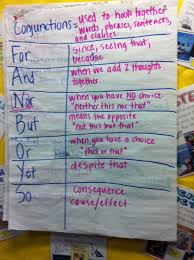 Conjunctions= used to hook together
words, phrases, sentences,
and clauses.
For since, seeing that,
because
And when we add 2 thoughts
together.
Nor when you have NO choice
"neither this nor that"
But means the opposite
"not this but that"
Or when you have a choice
"this or that"
Yet despite that
So consequence
cause/effect